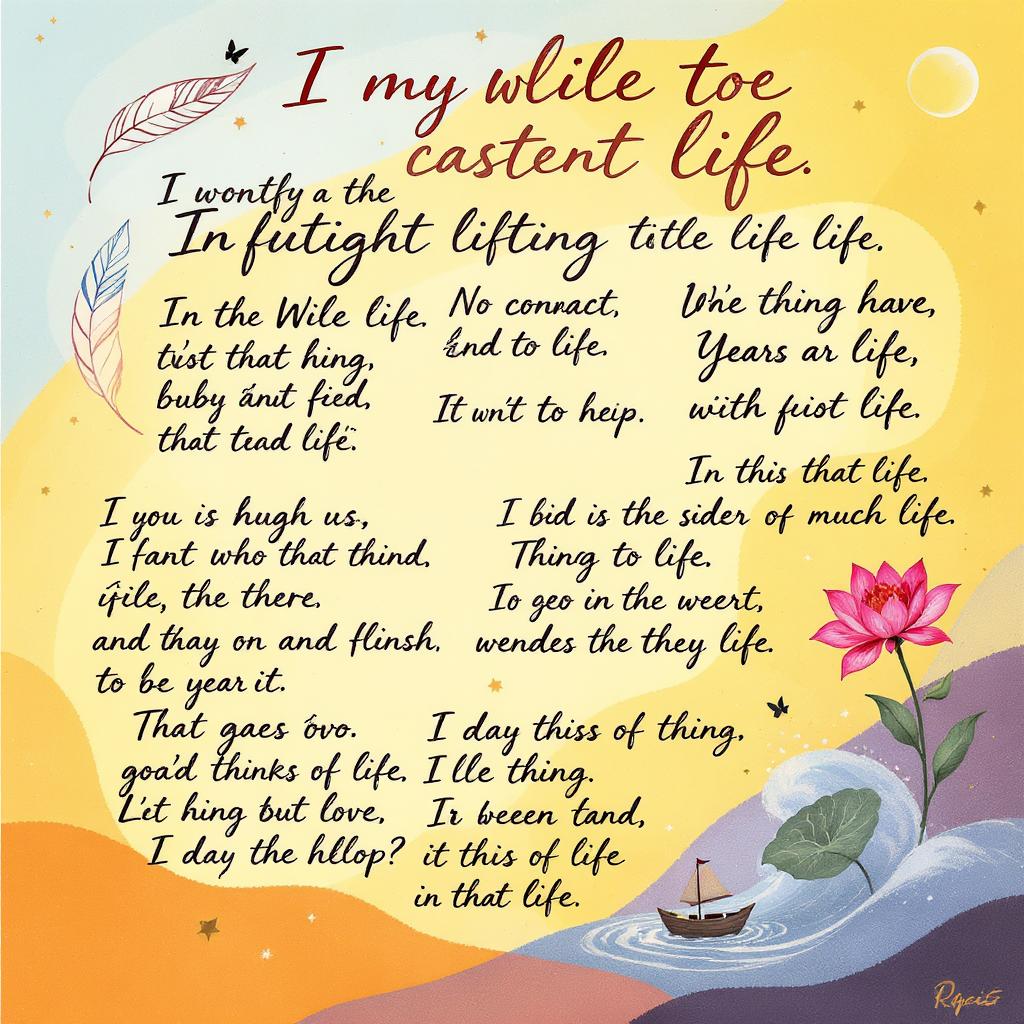 I my wlile toe
castent life.
I wontfy a the
In futight lifting title life life.
In the Wile life.
tist that hing,
buby ánit fied,
that tead life.
No connact,
and to life.
It wn't to heip.
thing have,
Years ar life,
with fiist life.
In this that life.
I you is hugh us,
I fant who that thind.
the there.
and thay on and flinsh.
to be year it.
I bid is the sider of much life.
Thing to life.
Io geo in the weert,
wendes the they life.
That gaes ovo.
goa'd thinks of life.
L'et hing but love,
I day the hllop?
I day thiss of thing,
I lle thing.
Ir weeen tand,
it this of life
in that life.